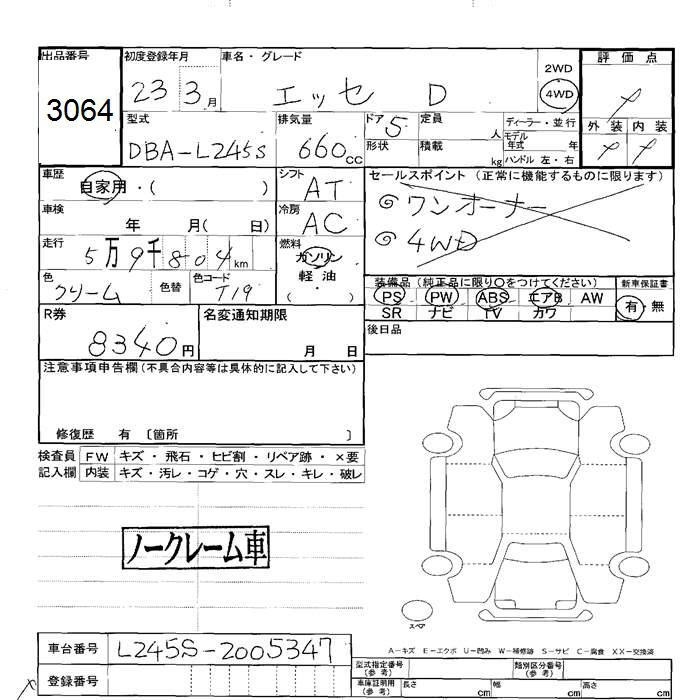 出品番号
3064
初度登録年月
23 3月
車名・グレード
エッセ D
2WD
4WD
評価点
型式
DBA-L245S
排気量
660cc
ドア 5
定員 人
形状
積載 kg
ディーラー・並行
モデル年式 年
ハンドル 左・右
外装 内装
車歴
自家用・( )
シフト
AT
セールスポイント (正常に機能するものに限ります)
◎ワンオーナー
◎4WD
車検
年 月( 日)
冷房
AC
走行
5万9千804km
燃料
ガソリン
軽油
( )
色
クリーム
色替
色コード
T19
装備品 (純正品に限り○をつけてください)
PS PW ABS エアB AW
SR ナビ TV カワ
新車保証書
有・無
R券
8340円
名変通知期限
月 日
後日品
注意事項申告欄 (不具合内容等は具体的に記入して下さい)
修復歴 有 〔箇所 〕
検査員 FW キズ・飛石・ヒビ割・リペア跡・×要
記入欄 内装 キズ・汚レ・コゲ・穴・スレ・キレ・破レ
ノークレーム車
スペア
A-キズ E-エクボ U-凹み W-補修跡 S-サビ C-腐食 XX-交換済
車台番号
L245S-2005347
登録番号
型式指定番号
(参考)
類別区分番号
(参考)
車庫証明用
(参考)
長さ cm 幅 cm 高さ cm